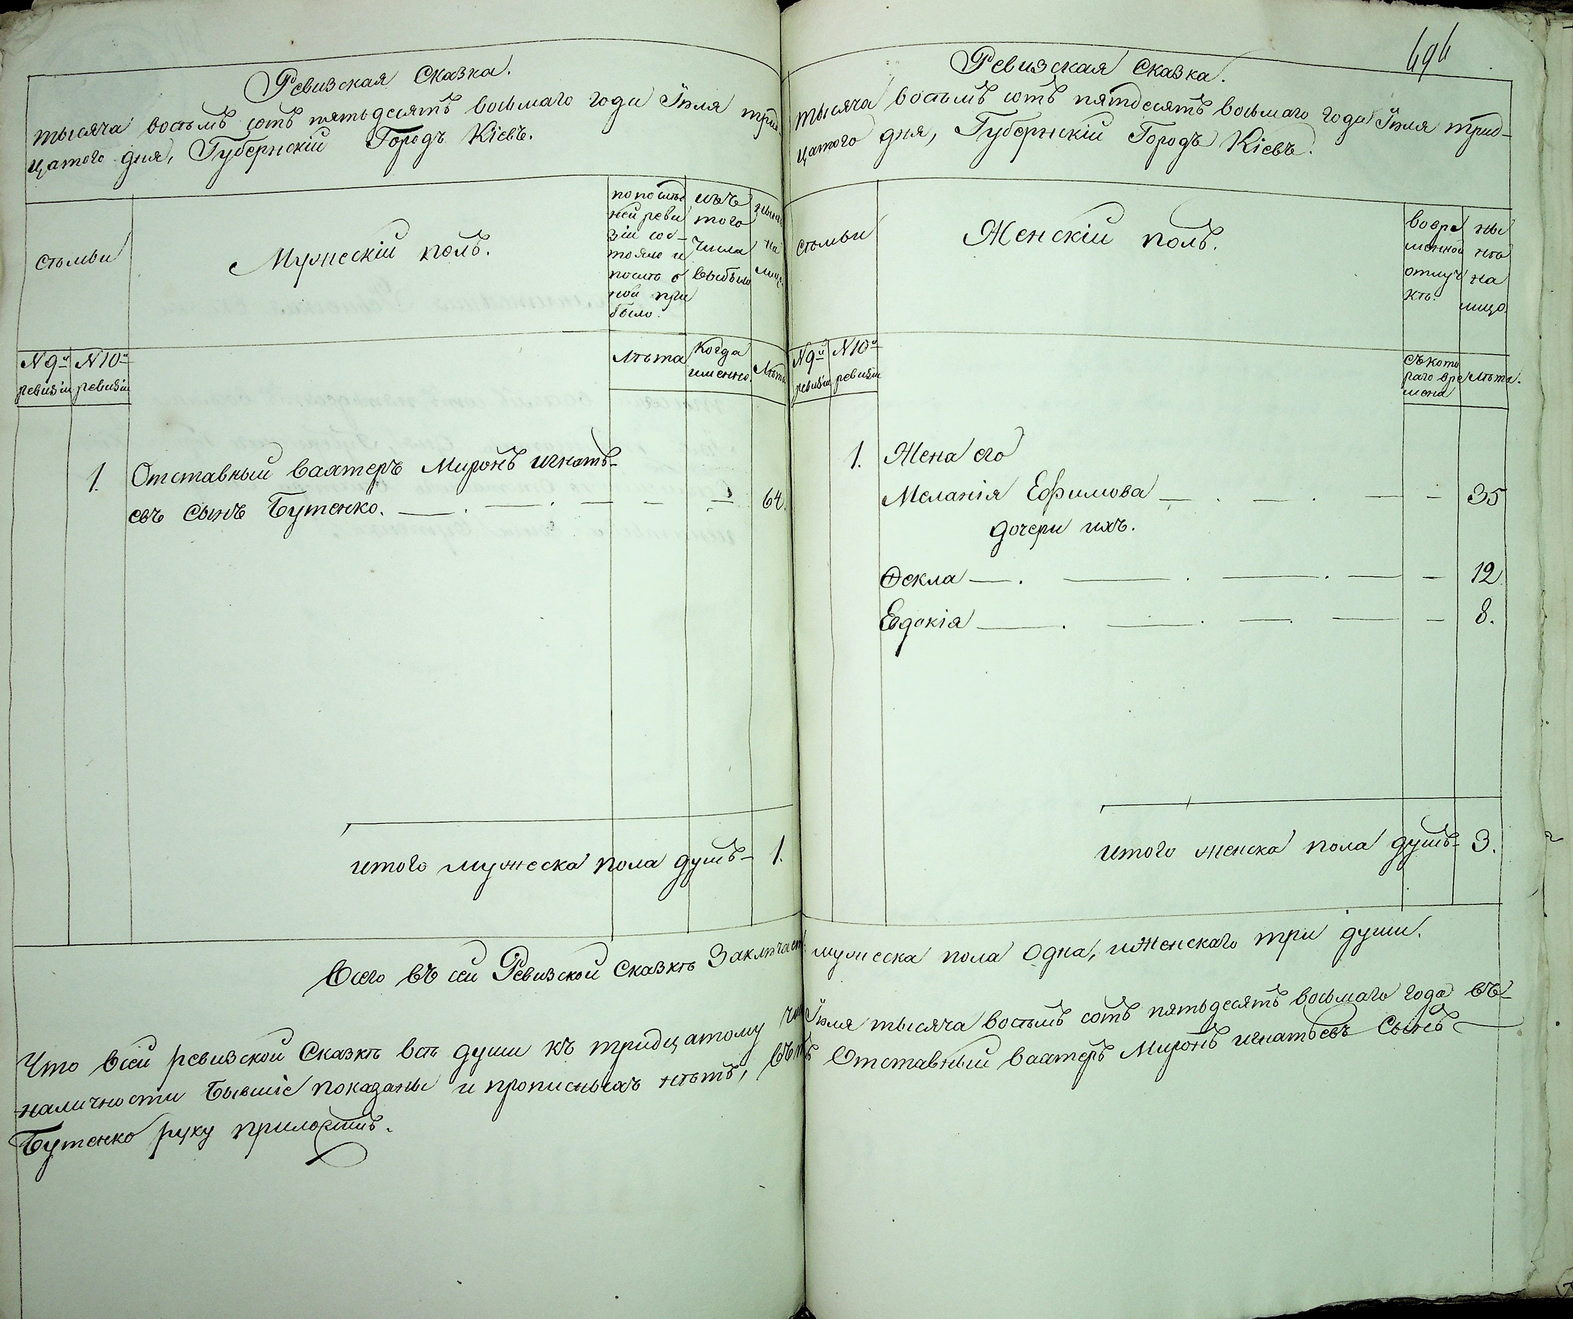 Ревизская Сказка.
тысяча восемь сотъ пятьдесятъ восьмаго года Іюля трид
цатого дня, Губернскій Городъ Кіевъ.
семьи
Мужескій полъ.
по послѣд
ней реви
зіи сос-
тояло и
послѣ о
ной при
было.
изъ
того
числа
выбыло
на
лицо
№ 9й
ревизіи
№ 10й
ревизіи
лѣта
когда
именно.
Лѣта
1. Отставный вахтеръ Миронъ игнатъ-
евъ сынъ Бутенко. 64.
итого мужеска пола душъ- 1.
694
Ревизская Сказка.
тысяча восемь сотъ пятдесятъ восьмаго года Іюля трид-
цатого дня, Губернскій Городъ Кіевъ.
семьи
Женскій полъ.
вовре
менной
отлуч
кѣ.
ны
нѣ
на
лицо
№ 9й
ревизіи
№ 10й
ревизіи
съ кото
раго вре
мени
лѣта.
1. Жена его
Меланія Ефимова 35
дочери ихъ.
Фекла 12
Евдокія 8.
итого женска пола душъ- 3.
Всего въ сей Ревизской Сказкѣ Заключает. мужеска пола Одна, и женскаго три души.
Что Всей ревизской Сказкѣ всѣ души къ тридцатому Іюля тысяча восемь сотъ пятьдесятъ восьмаго года въ-
наличности Бывшіе показаны и прописныхъ нѣтъ, Отставный вахтеръ Миронъ игнатьевъ Сынъ
Бутенко руку приложилъ.